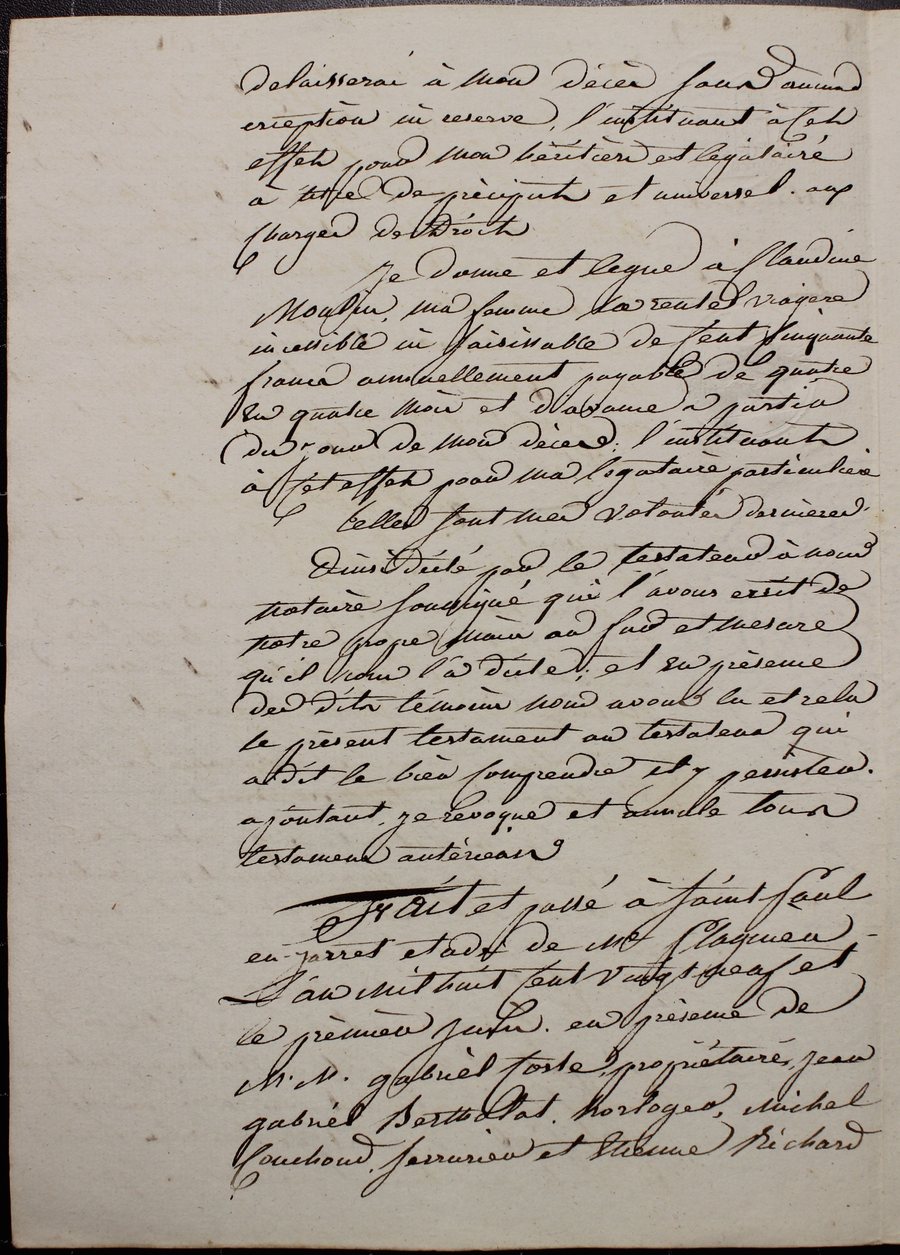 delaisserai à mon décès sans aucune
exception ni reserve, l'instituant à cet
effet pour mon héritier et légataire
à titre de préciput et universel. aux
charges de Droit
Je donne et legue à Claudine
Moulin, ma femme la rente viagère
incessible insaisissable de Cent Cinquante
francs annuellement payable de quatre
en quatre mois et d'avance a partir
du jour de mon décès; l'instituant
à cet effet pour ma légataire particulière
telles sont mes volontés dernieres.
Ainsi dicté par le testateur à nous
notaire soussigné qui l'avons ecrit de
notre propre main au fur et mesure
qu'il nous l'a dicté; et en présence
des dits témoins nous avons lu et relu
le présent testament au testateur qui
a dit le bien comprendre et y persister.
ajoutant, je revoque et annule tous
testamens antérieurs
Fait et passé à Saint Paul
en-jarret etude de Me
L'an mil huit Cent vingt neuf et
le premier juin. en présence de
M. M. gabriel forte, propriétaire, jean
gabriel Bertholat, horloger, Michel
Couchoud, serrurier et Etienne Richard